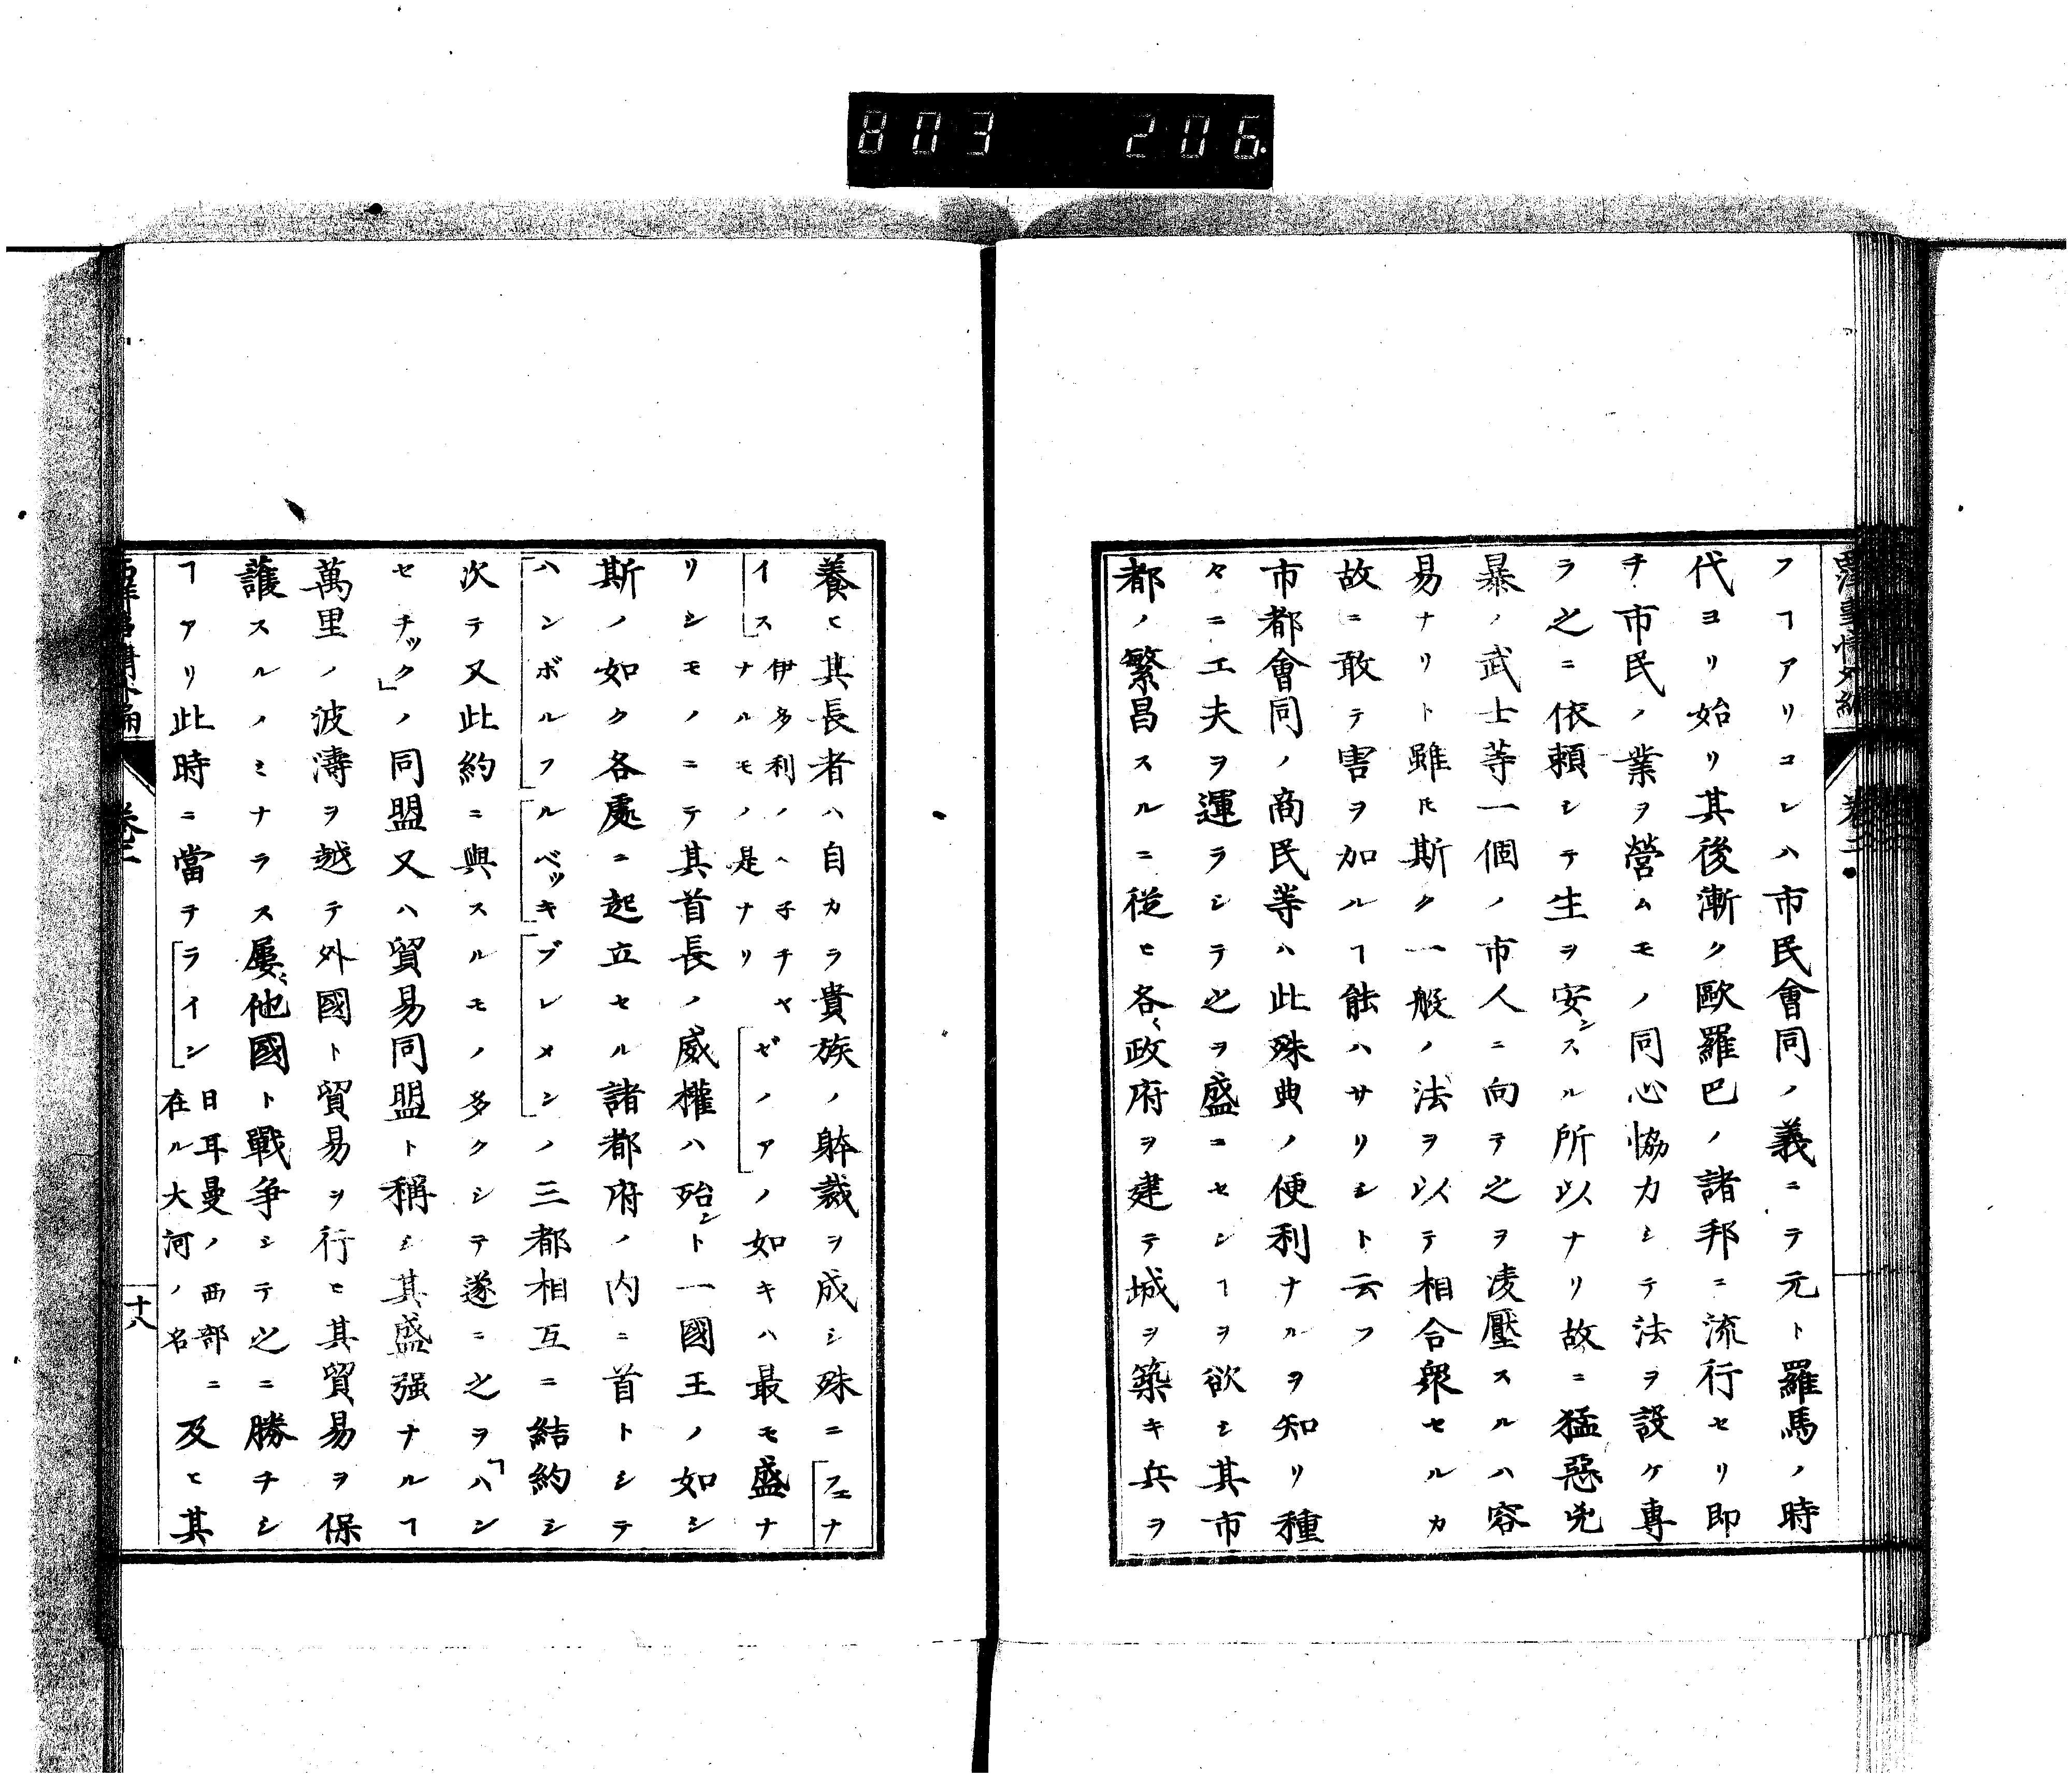 803 206
フヿアリコレハ市民會同ノ義ニテ元ト羅馬ノ時
代ヨリ始リ其後漸ク歐羅巴ノ諸邦ニ流行セリ即
チ市民ノ業ヲ營ムモノ同心恊力シテ法ヲ設ケ專
ラ之ニ依頼シテ生ヲ安ンスル所以ナリ故ニ猛惡兇
暴ノ武士等一個ノ市人ニ向テ之ヲ凌壓スルハ容
易ナリト雖𪜈斯ク一般ノ法ヲ以テ相合衆セルカ
故ニ敢テ害ヲ加ルヿ能ハサリシト云フ
市都會同ノ商民等ハ此殊典ノ便利ナルヲ知リ種
々ニ工夫ヲ運ラシテ之ヲ盛ニセンヿヲ欲シ其市
都ノ繁昌スルニ從ヒ各〻政府ヲ建テ城ヲ築キ兵ヲ
養ヒ其長者ハ自カラ貴族ノ躰裁ヲ成シ殊ニ「フェナ
イス」伊多利ノヘ子チヤナルモノ是ナリ「ゼノア」ノ如キハ最モ盛ナ
リシモノニテ其首長ノ威權ハ殆ント一國王ノ如シ
斯ノ如ク各處ニ起立セル諸都府ノ内ニ首トシテ
「ハンボルフ」「ルベッキ」「ブレメン」ノ三都相互ニ結約シ
次テ又此約ニ與スルモノ多クシテ遂ニ之ヲ「ハン
セチック」ノ同盟又ハ貿易同盟ト稱シ其盛强ナルヿ
萬里ノ波濤ヲ越テ外國ト貿易ヲ行ヒ其貿易ヲ保
護スルノミナラス屢〻他國ト戰爭シテ之ニ勝チシ
ヿアリ此時ニ當テ「ライン」日耳曼ノ西部ニ在ル大河ノ名及ヒ其
西洋事情外編
卷二
十八